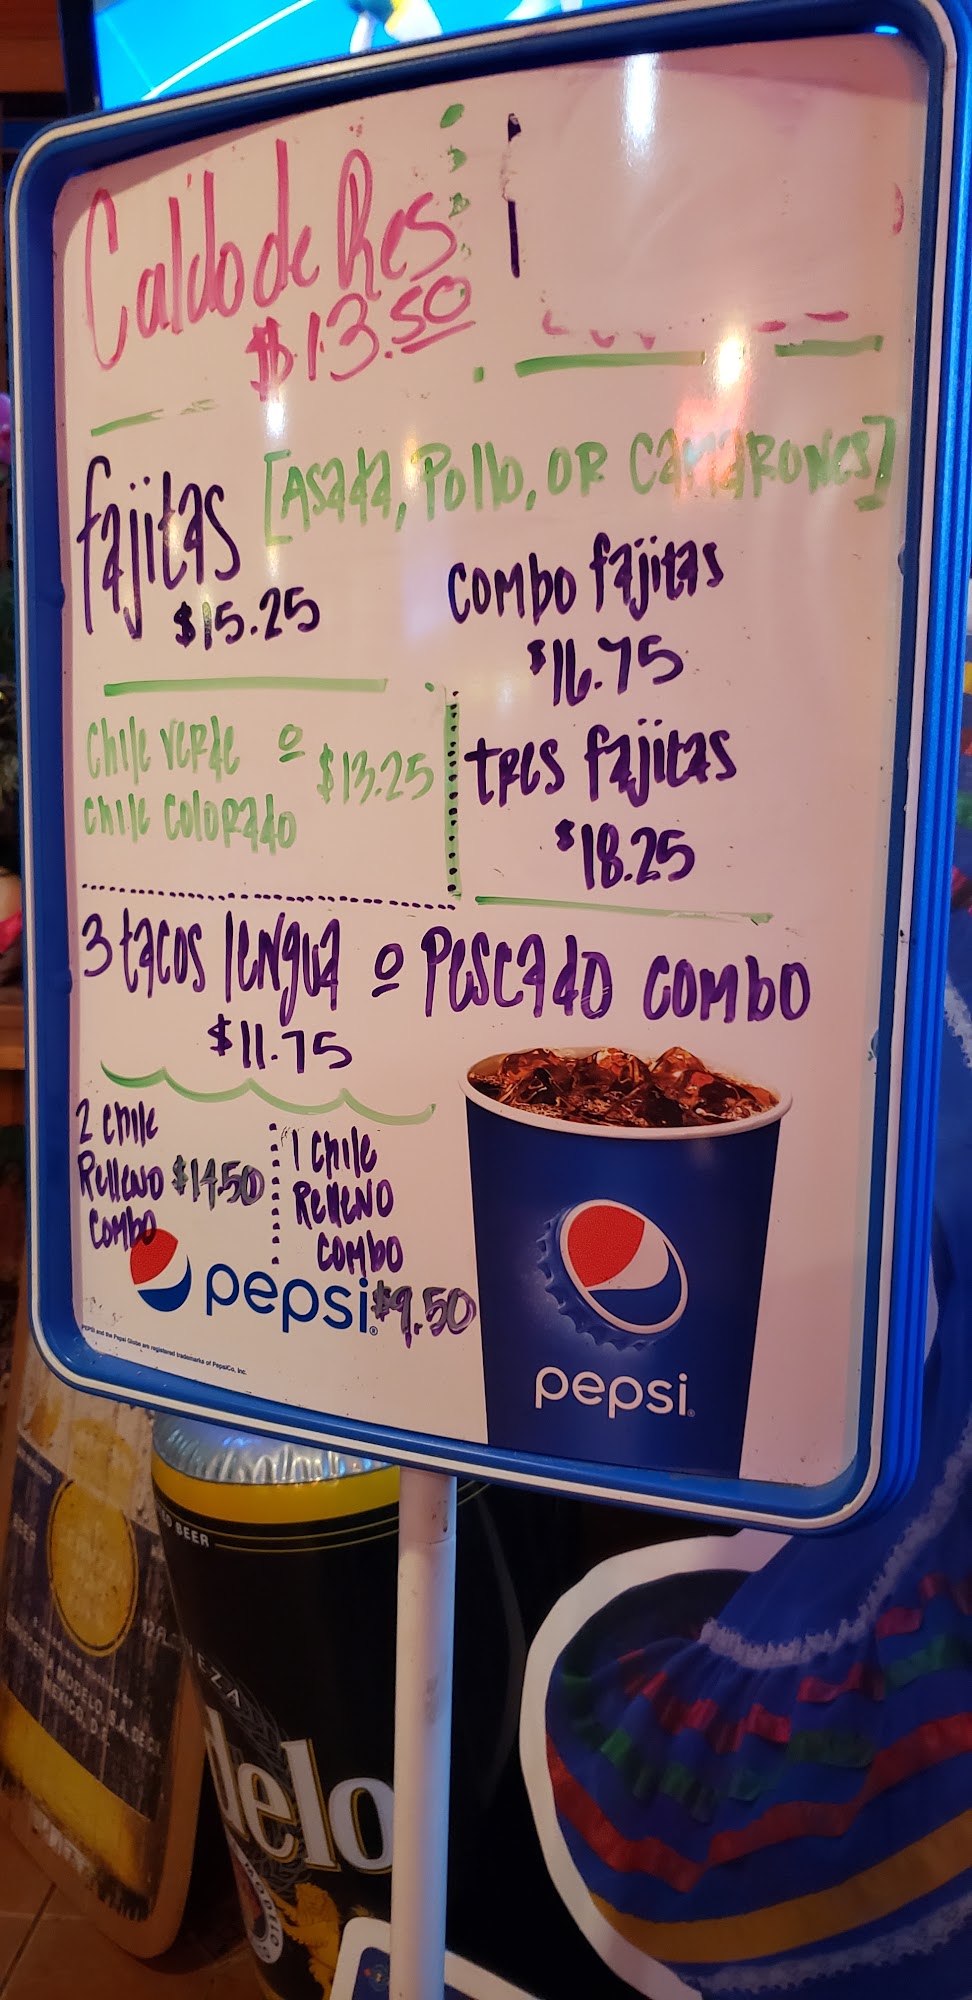 Caldo de Res
$13.50
fajitas [Asada, Pollo, OR CAMARONES]
$15.25
Combo fajitas
$16.75
Chile verde o
chile Colorado
$13.25
tres fajitas
$18.25
3 tacos lengua o Pescado combo
$11.75
2 Chile
Relleno $14.50
Combo
1 Chile
Relleno
Combo
$9.50
pepsi
PEPSI and the Pepsi Globe are registered trademarks of PepsiCo, Inc.
pepsi
BEER
BEER
MODELO S.A. DE C.V.
MEXICO, D.F.
delo